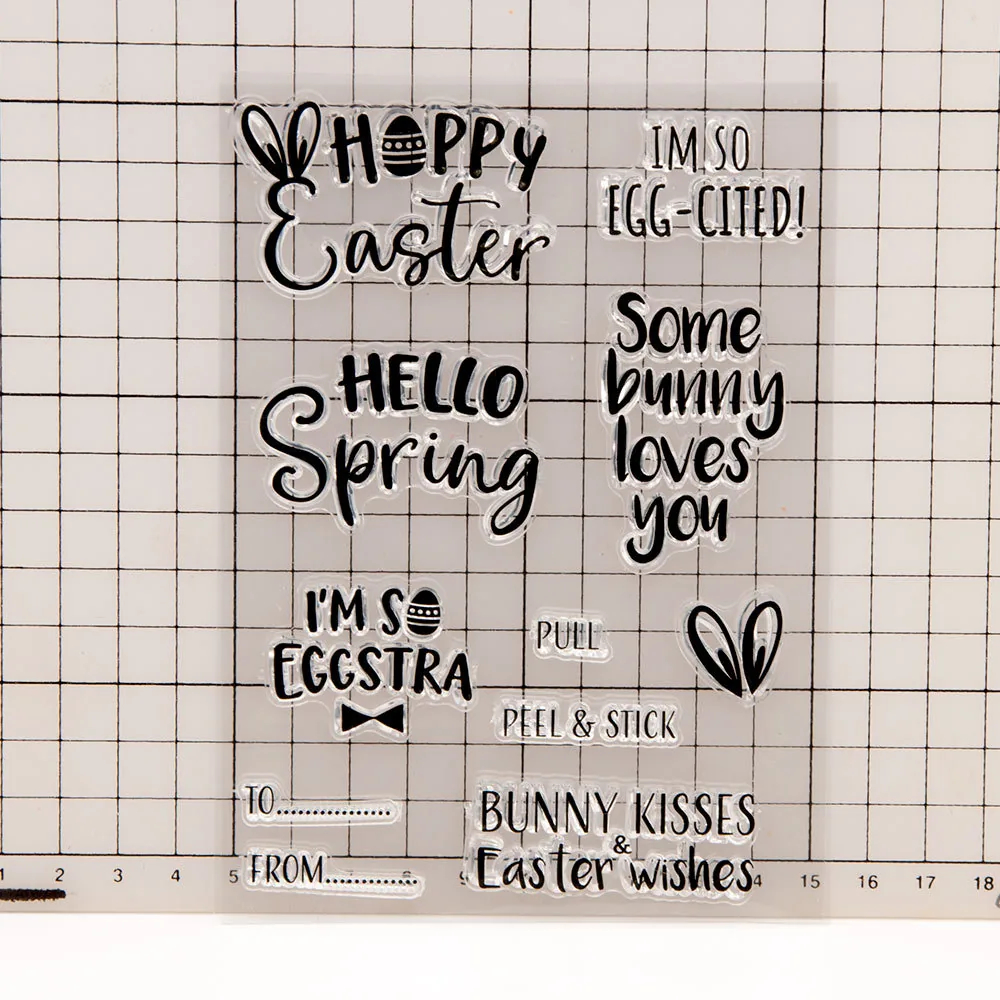 HOPPY
Easter
IM SO
EGG-CITED!
HELLO
Spring
Some
bunny
loves
you
I'M SO
EGGSTRA
PULL
PEEL & STICK
TO....................
FROM................
BUNNY KISSES
&
Easter wishes
1 2 3 4 5 8 9 14 15 16 17 18